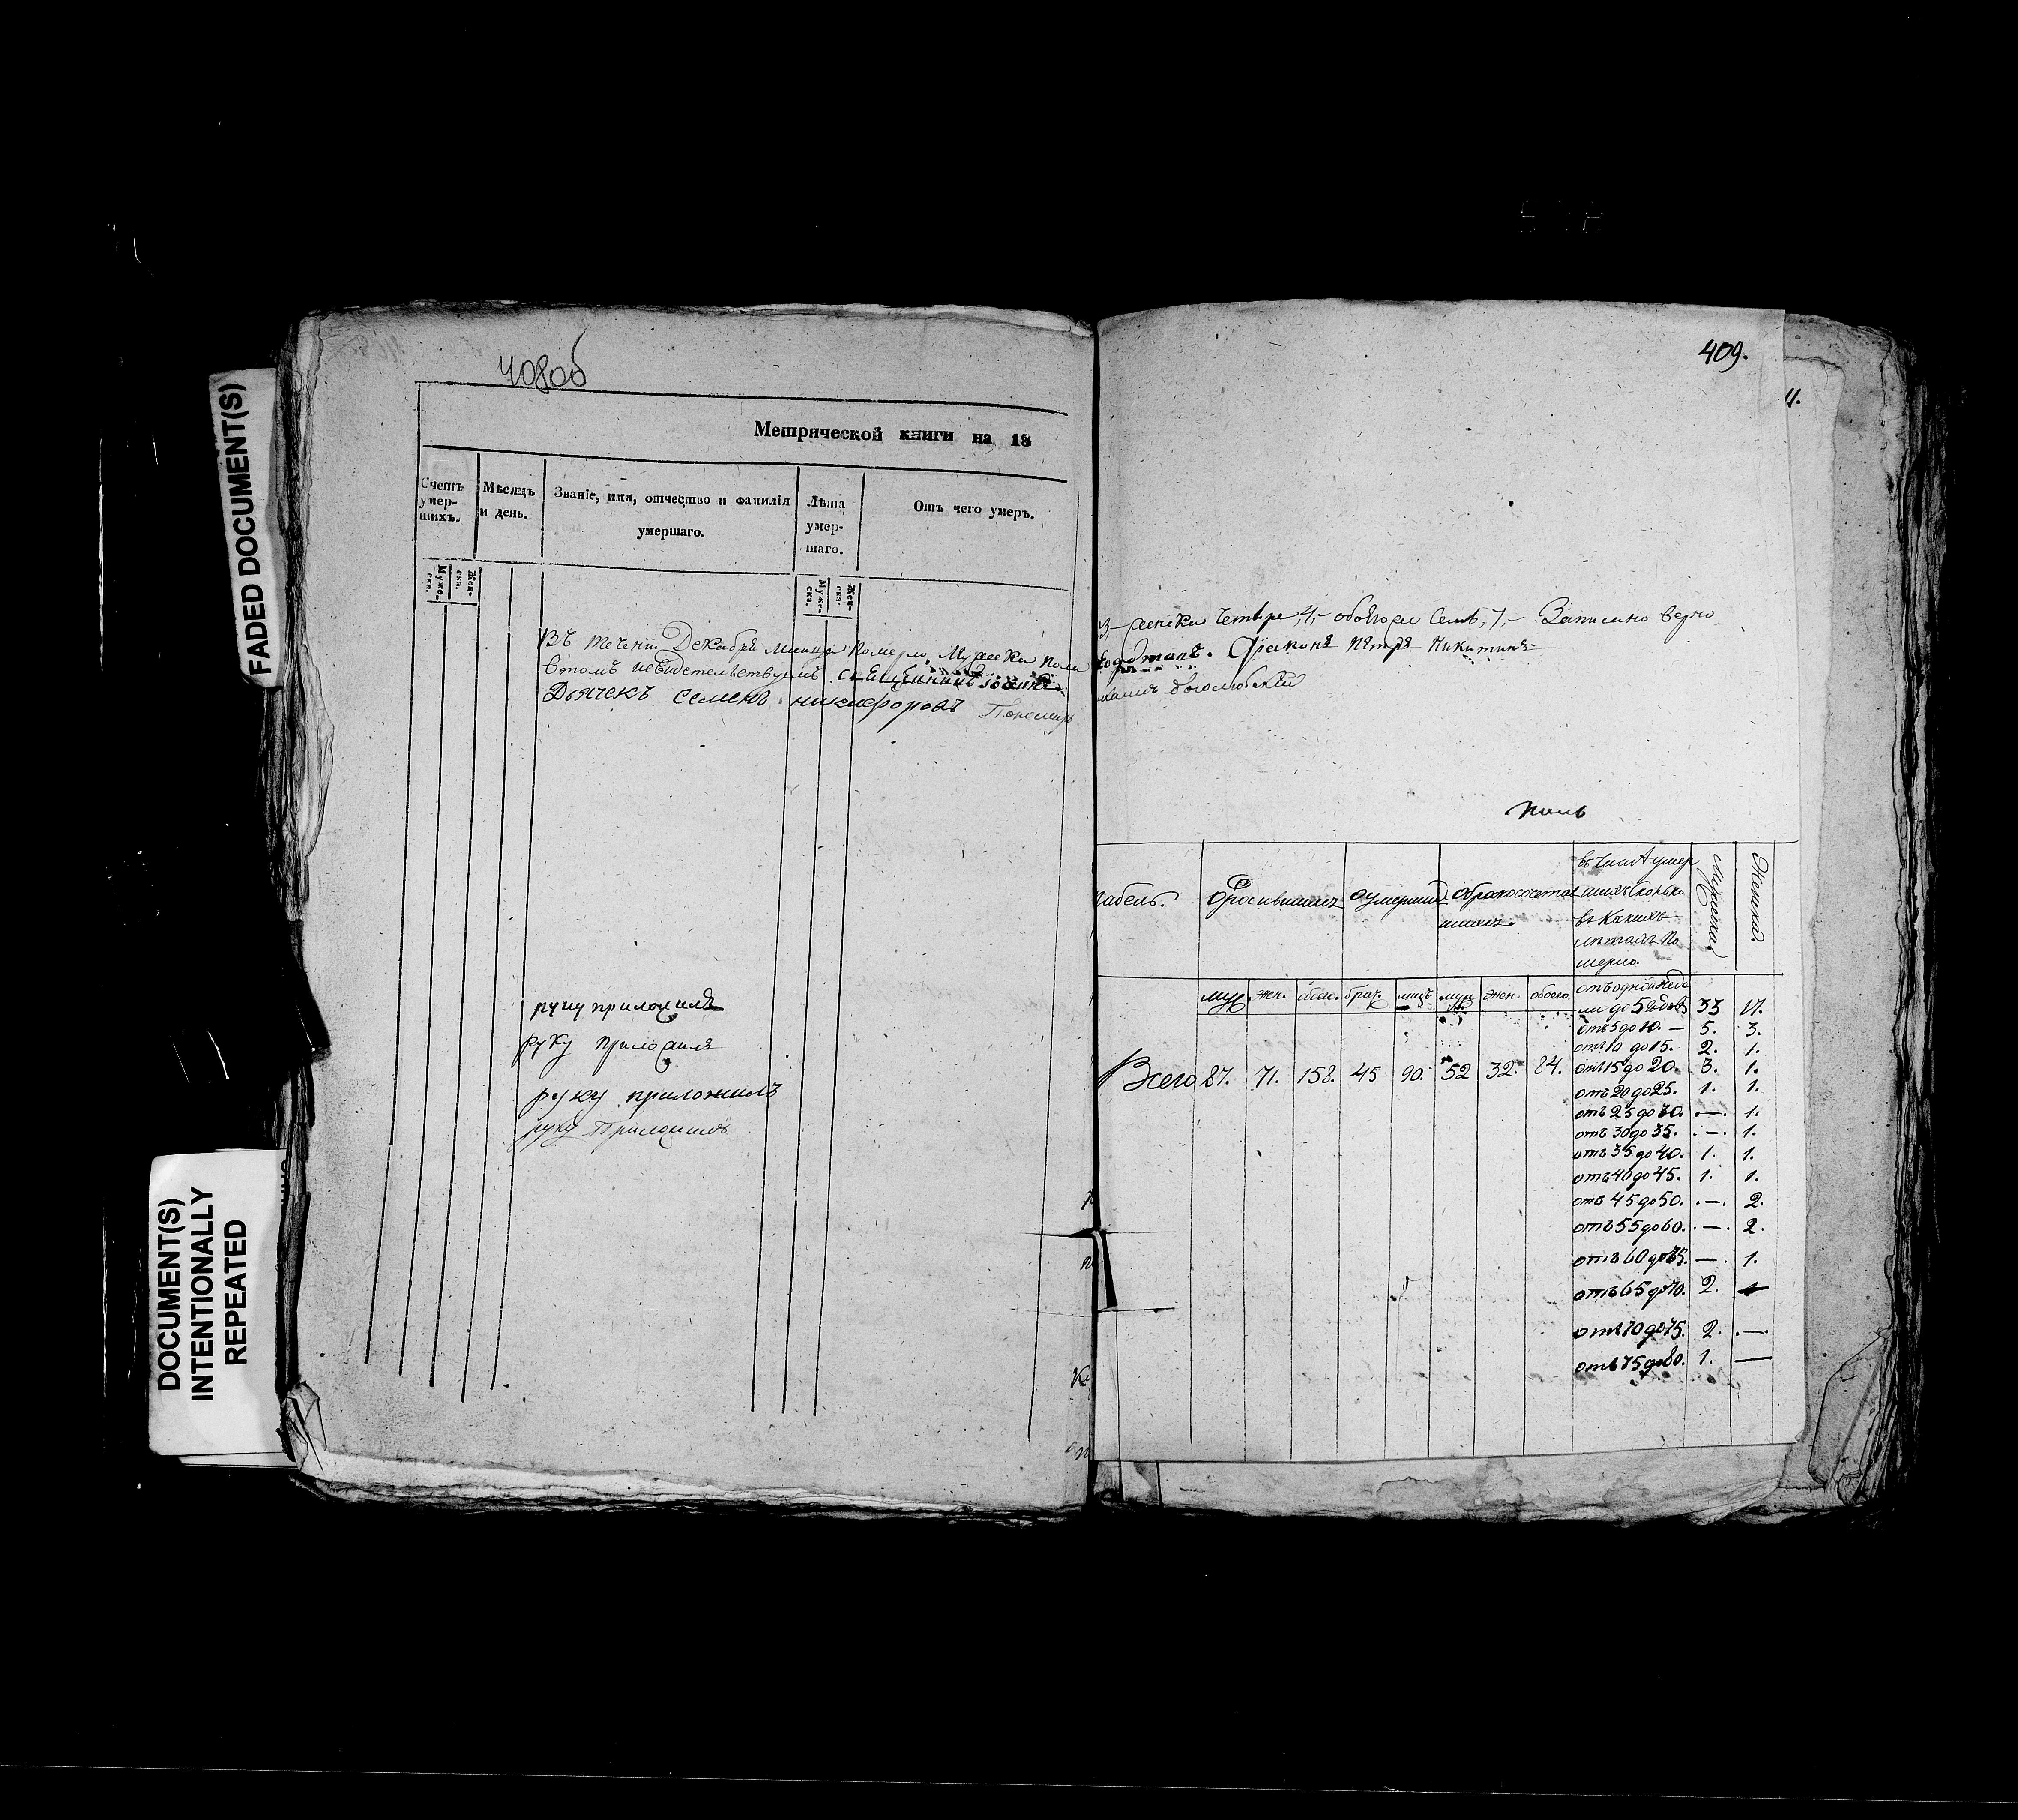 FADED DOCUMENT(S)
DOCUMENT(S)
INTENTIONALLY
REPEATED
408об
Метрической книги на 18
Счетъ умер-шихъ.
Мѣсяцъ и день.
Званіе, имя, отчество и фамилія умершаго.
Лѣта умер-шаго.
Отъ чего умеръ.
Муже-ска.
Жен-ска.
Муже-ска.
Жен-ска.
Въ течении Декабря месяца Померло Мужеска пола
втомъ
Дьячекъ Семенъ никифоровъ
руку приложилъ
руку приложилъ
руку приложилъ
руку Приложилъ
409.
11.
3,- женска четыре, 4,- обоего семь, 7,- Записано верно
Петръ Никитинъ
Полъ
табель.
О родившихся
О умершихъ
О бракосочетав-шихся
въ числѣ умер
шихъ сколько
въ какихъ
летахъ по
мерло.
Мужеска
Женска.
муж. жен. обоего
отъ одной неде
ли до 5 годовъ 33 17.
отъ 5 до 10. — 5. 3.
отъ 10 до 15. 2. 1.
Всего 87. 71. 158. 45 90. 52 32. 84. отъ 15 до 20. 3. 1.
отъ 20 до 25. 1. 1.
отъ 25 до 30. — 1.
отъ 30 до 35. — 1.
отъ 35 до 40. 1. 1.
отъ 40 до 45. 1. 1.
отъ 45 до 50. — 2.
отъ 55 до 60. — 2.
отъ 60 до 65. — 1.
отъ 65 до 70. 2. —
отъ 70 до 75. 2. —
отъ 75 до 80. 1. —